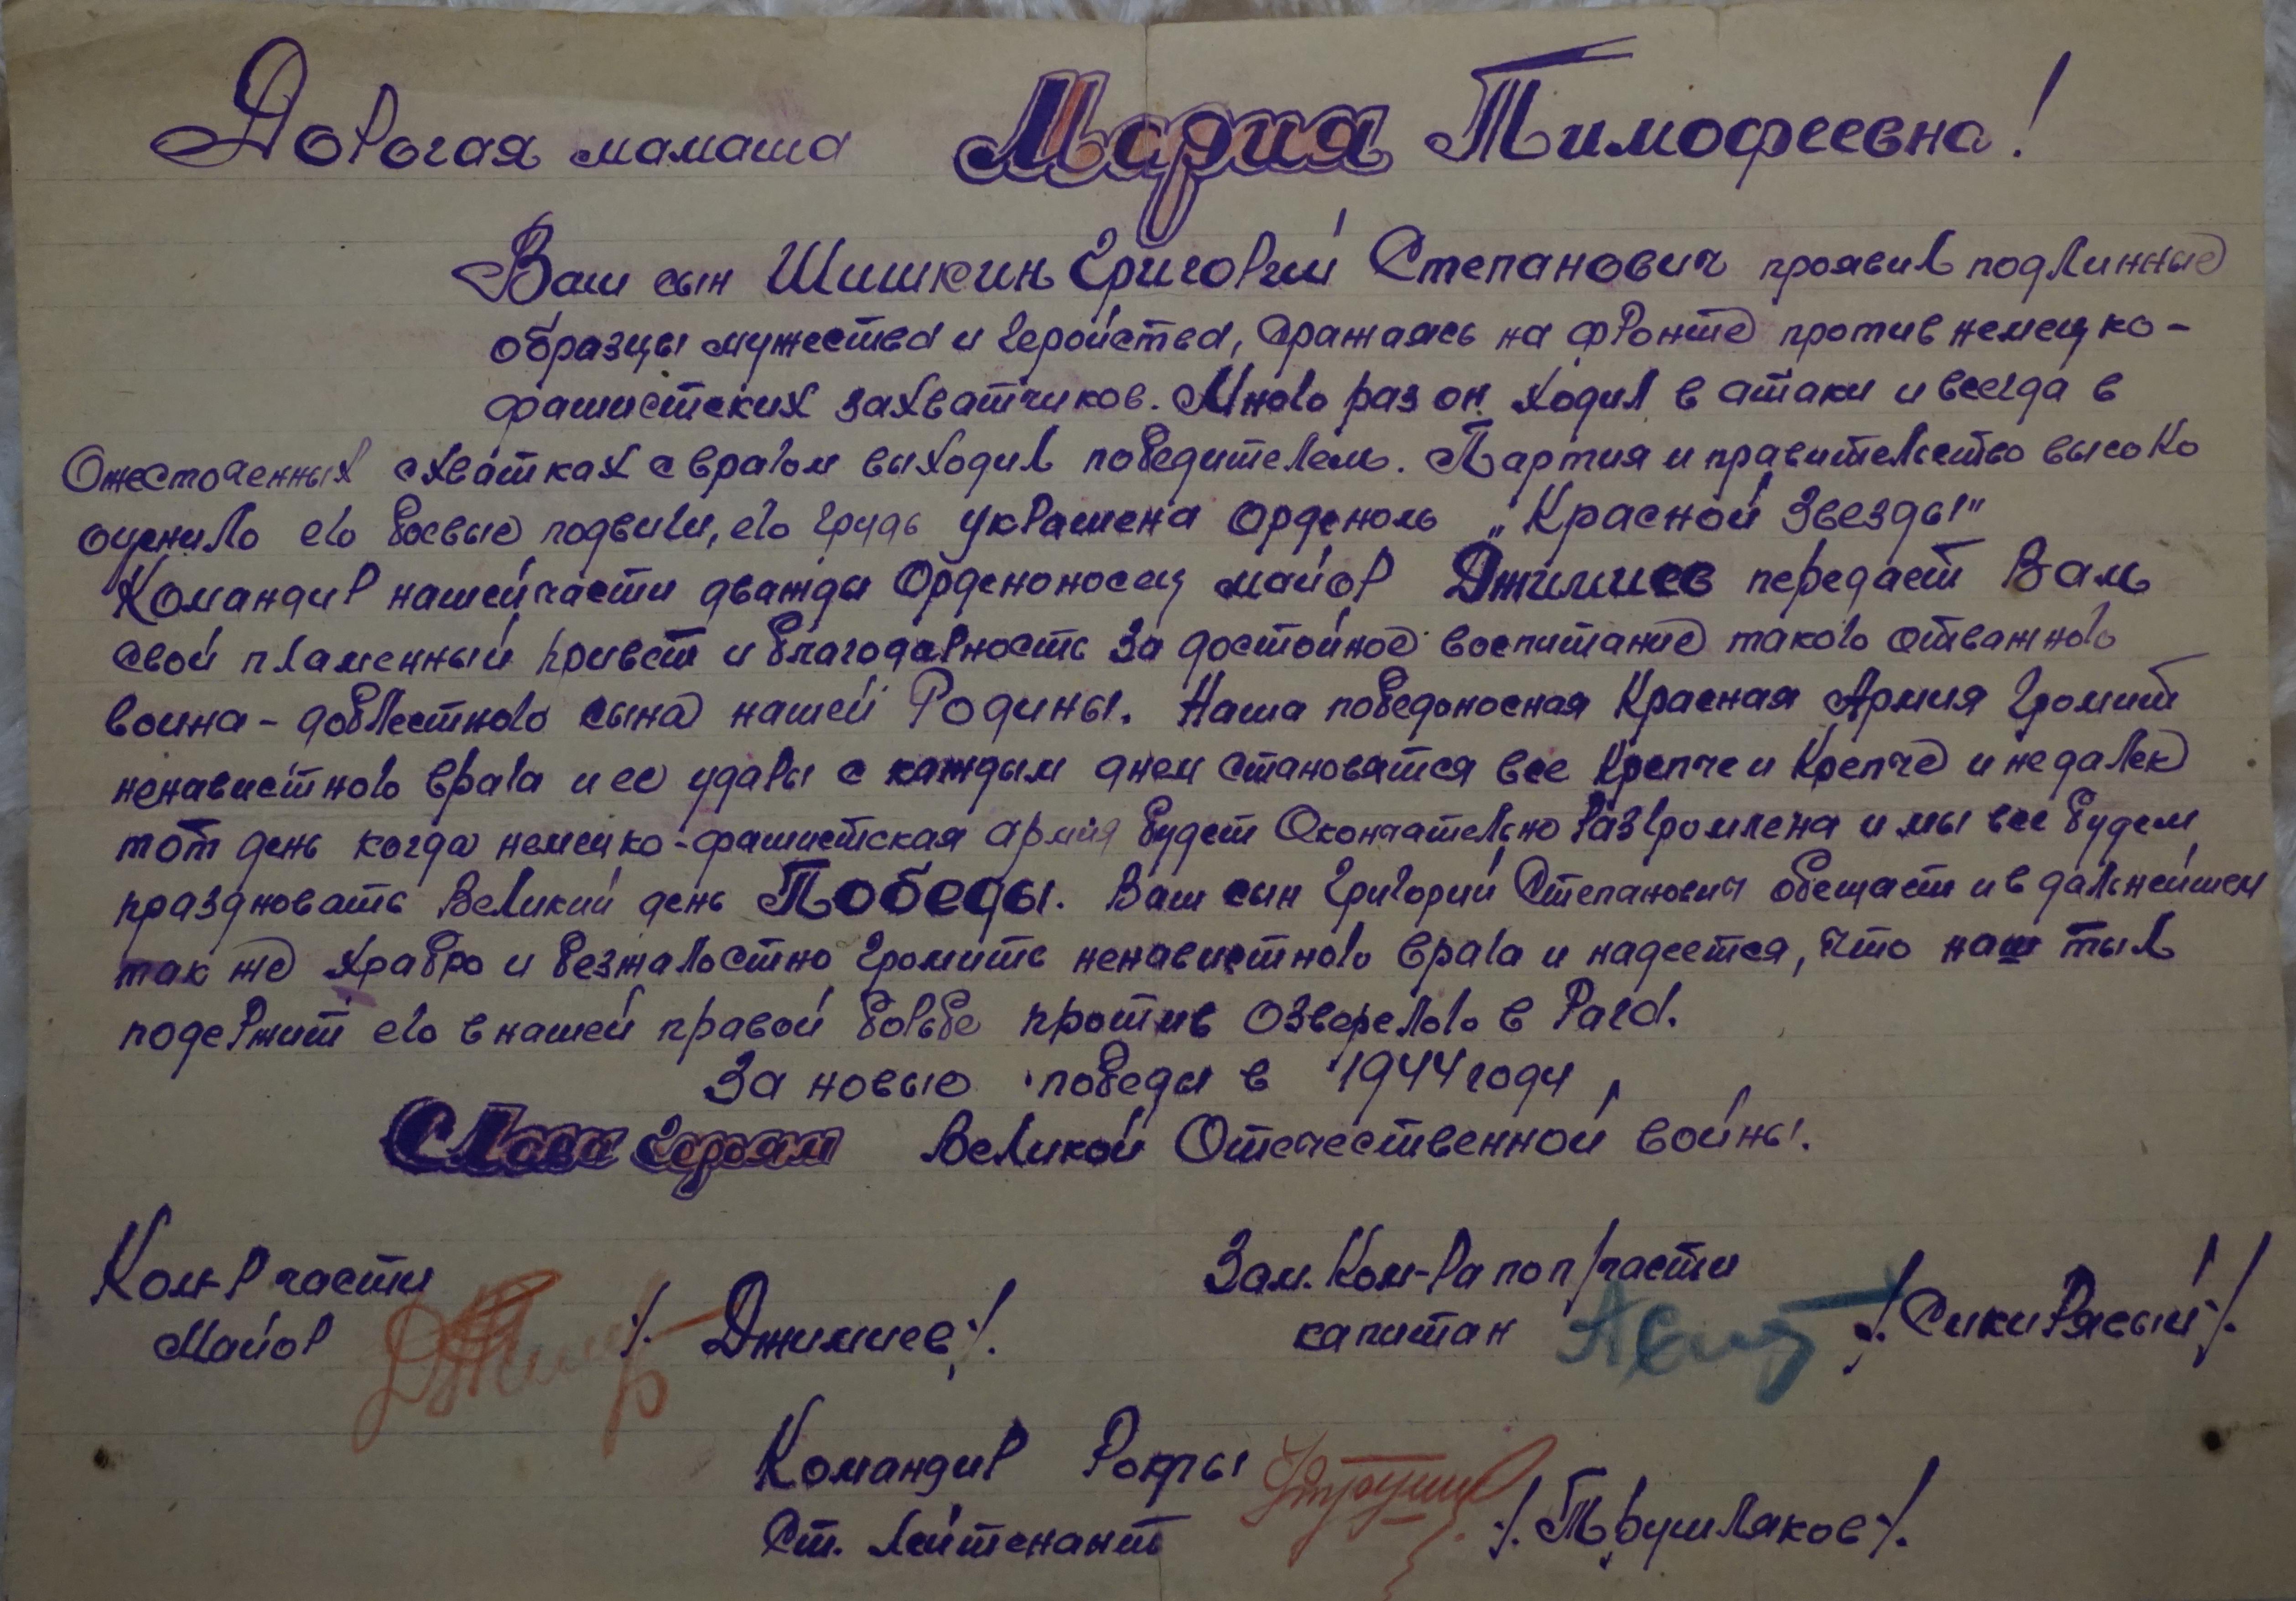 Дорогая мамаша Мария Тимофеевна!
Ваш сын Шишкин Григорий Степанович проявил подлинные
образцы мужества и геройства, сражаясь на фронте против немецко-
фашистских захватчиков. Много раз он ходил в атаки и всегда в
Ожесточенных схватках с врагом выходил победителем. Партия и правительство высоко
оценило его боевые подвиги, его грудь украшена орденомь „Красной Звезды"
Командир нашей части дважды Орденоносец майор Джимиев передает Вам
свой пламенный привет и благодарность за достойное воспитание такого отважного
воина - доблестного сына нашей Родины. Наша победоносная Красная Армия громит
ненавистного врага и ее удары с каждым днем становятся все крепче и крепче и недалек
тот день когда немецко-фашистская армия будет Окончательно разгромлена и мы все будем
праздновать Великий день Победы. Ваш сын Григорий Степанович обещает и в дальнейшем
так же храбро и безжалостно громить ненавистного врага и надеется, что наш тыл
подержит его в нашей правой борьбе против озверелого врага.
За новые победы в 1944 году,
Слава героям Великой Отечественной войны.
Ком-р части Зам. Ком-ра по п/части
Майор /. Джимиев/. капитан /. Сикирясый/.
Командир Роты
Ст. Лейтенант /. Трушляков/.